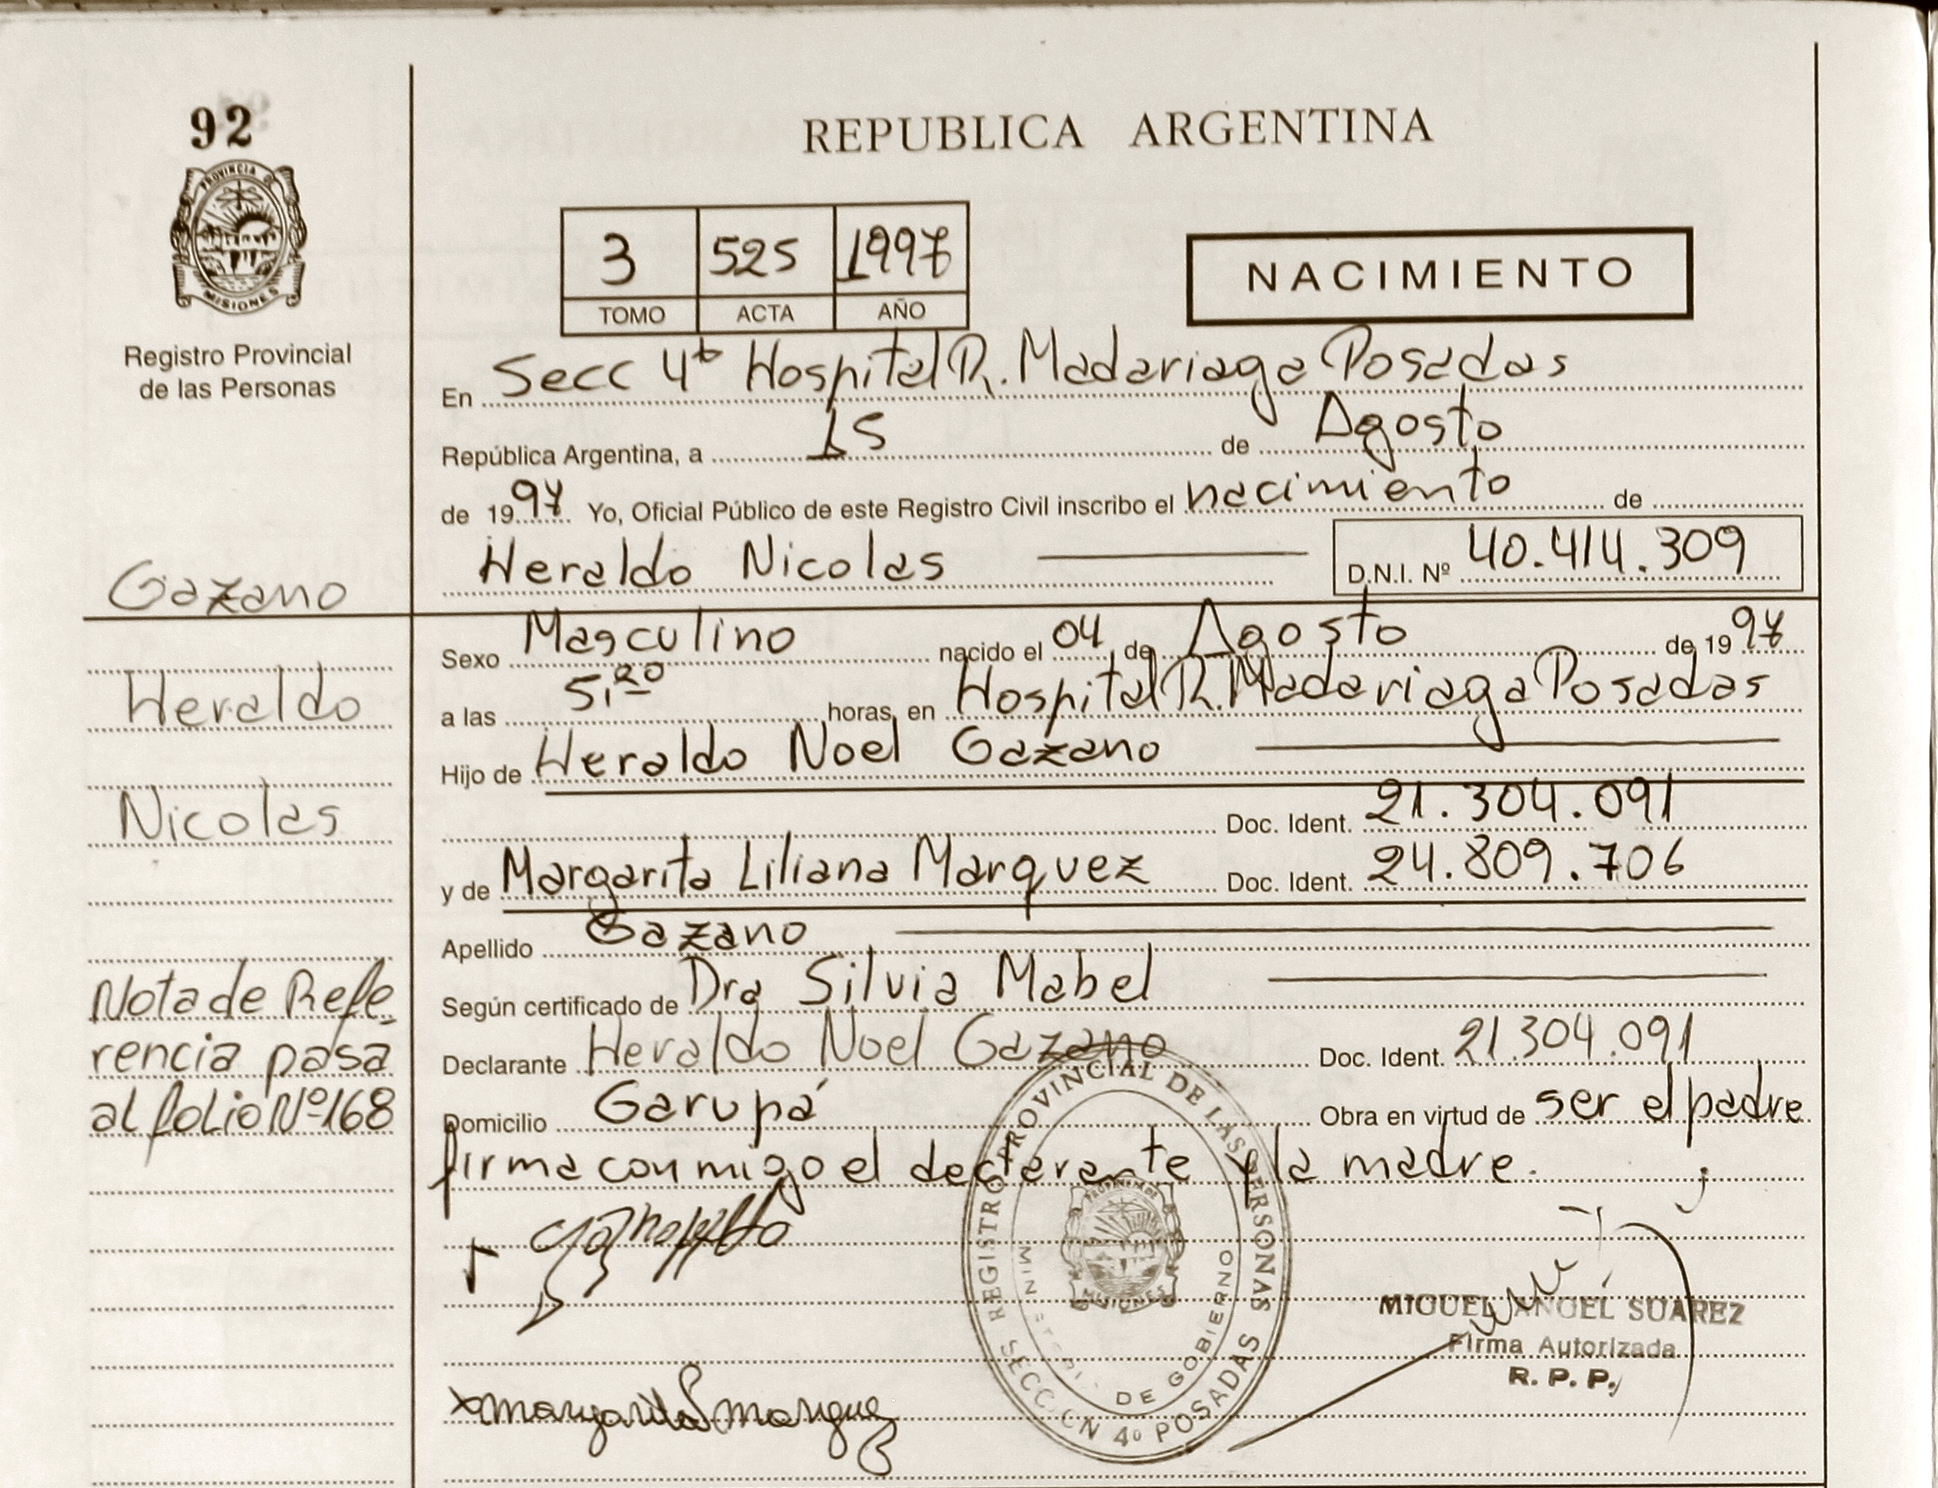 92
PROVINCIA DE
MISIONES
Registro Provincial
de las Personas
REPUBLICA ARGENTINA
3 525 1997
TOMO ACTA AÑO
NACIMIENTO
En Secc 4ta Hospital R. Madariaga Posadas
República Argentina, a 15 de Agosto
de 1997 Yo, Oficial Público de este Registro Civil inscribo el nacimiento de
Heraldo Nicolas D.N.I. Nº 40.414.309
Gazano
Heraldo
Nicolas
Nota de Refe-
rencia pasa
al folio Nº 168
Sexo Masculino nacido el 04 de Agosto de 1997
a las 5,20 horas, en Hospital R. Madariaga Posadas
Hijo de Heraldo Noel Gazano
Doc. Ident. 21.304.091
y de Margarita Liliana Marquez Doc. Ident. 24.809.706
Apellido Gazano
Según certificado de Dra Silvia Mabel
Declarante Heraldo Noel Gazano Doc. Ident. 21.304.091
Domicilio Garupá Obra en virtud de ser el padre
firma conmigo el declarante y la madre.
REGISTRO PROVINCIAL DE LAS PERSONAS
MINISTERIO DE GOBIERNO
MISIONES
SECCION 4º POSADAS
MIGUEL ANGEL SUAREZ
Firma Autorizada
R. P. P.